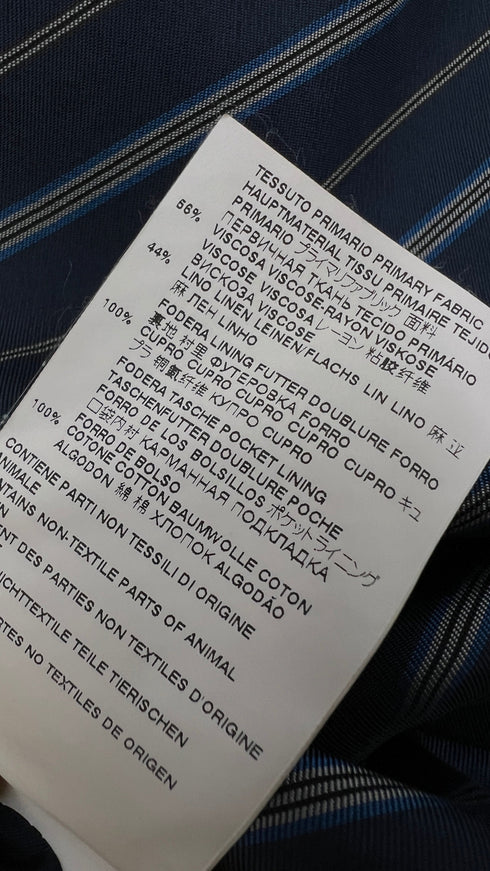 TESSUTO PRIMARIO PRIMARY FABRIC
HAUPTMATERIAL TISSU PRIMAIRE TEJIDO
PRIMARIO プライマリファブリック 面料
ПЕРВИЧНАЯ ТКАНЬ TECIDO PRIMÁRIO
56% VISCOSA VISCOSE-RAYON VISKOSE
VISCOSE VISCOSA レーヨン 粘胶纤维
ВИСКОЗА VISCOSE
44% LINO LINEN LEINEN/FLACHS LIN LINO 麻 亚
麻 ЛЕН LINHO
FODERA LINING FUTTER DOUBLURE FORRO
裏地 衬里 ФУТЕРОВКА FORRO
100% CUPRO CUPRO CUPRO CUPRO CUPRO キュ
プラ 铜氨纤维 КУПРО CUPRO
FODERA TASCHE POCKET LINING
TASCHENFUTTER DOUBLURE POCHE
FORRO DE LOS BOLSILLOS ポケットライニング
口袋内衬 КАРМАННАЯ ПОДКЛАДКА
FORRO DE BOLSO
100% COTONE COTTON BAUMWOLLE COTON
ALGODON 綿 棉 ХЛОПОК ALGODÃO
CONTIENE PARTI NON TESSILI DI ORIGINE
ANIMALE
NTAINS NON-TEXTILE PARTS OF ANIMAL
ENT DES PARTIES NON TEXTILES D'ORIGINE
NICHTTEXTILE TEILE TIERISCHEN
RTES NO TEXTILES DE ORIGEN